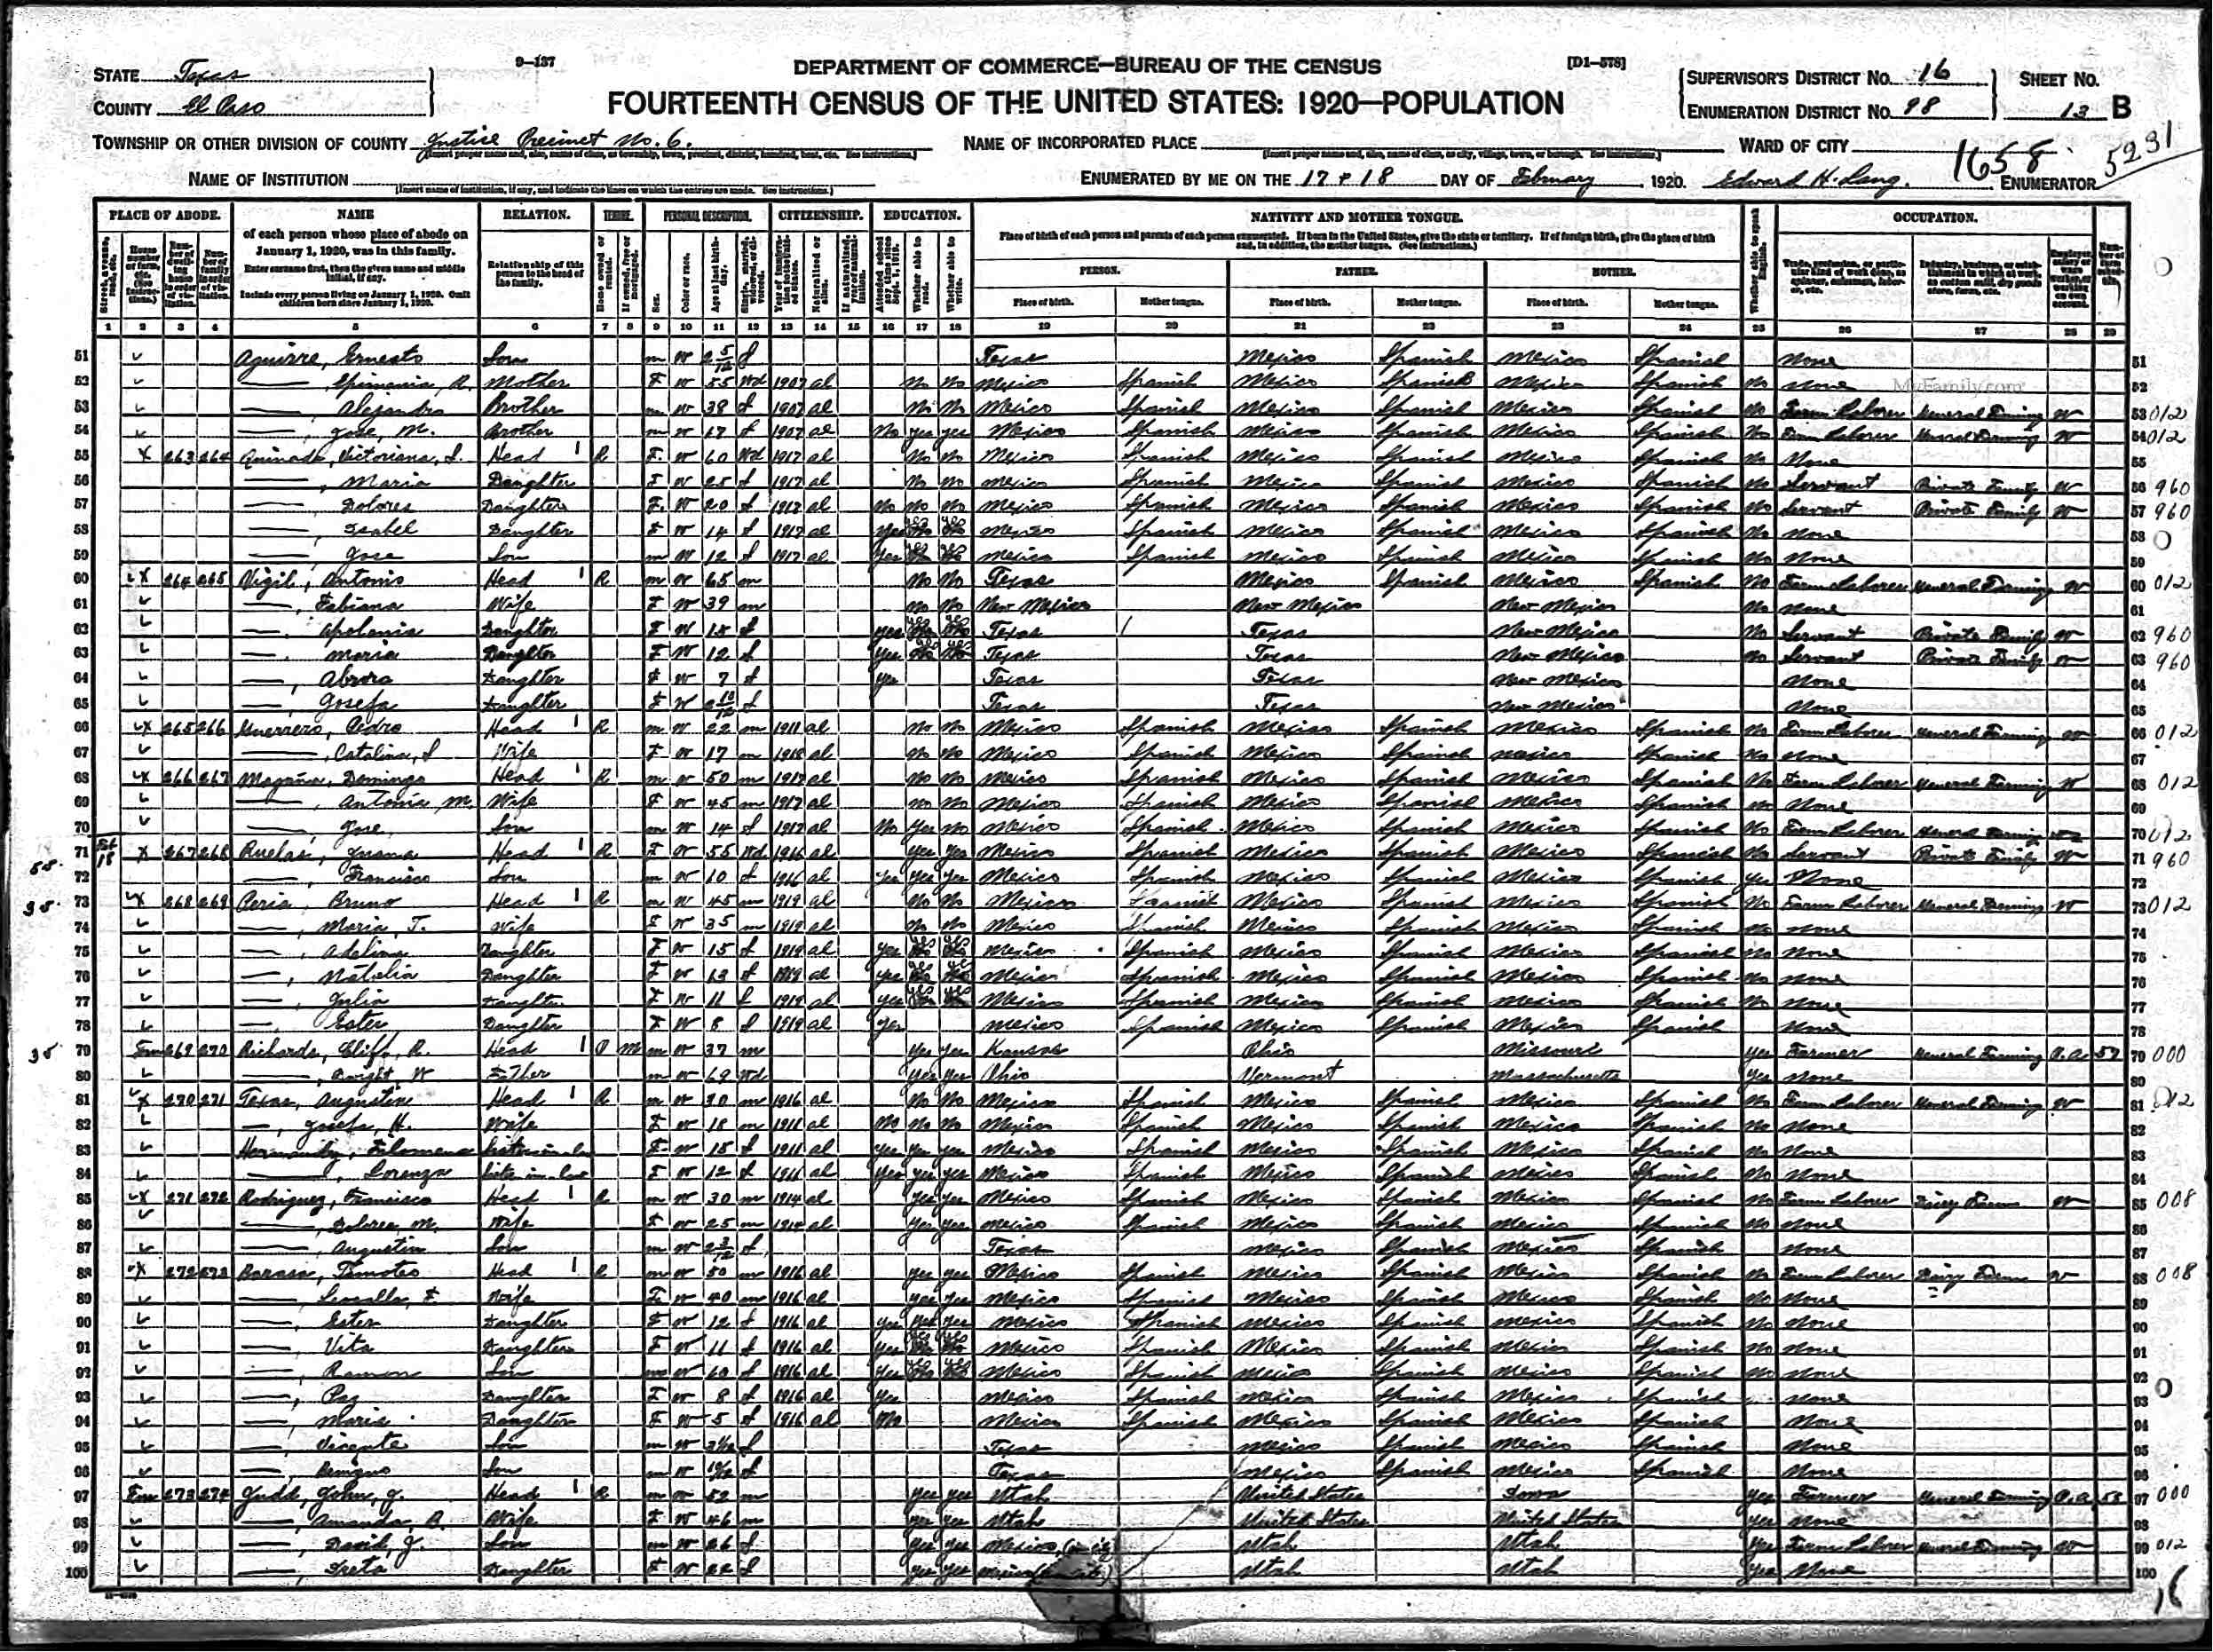 9—137
DEPARTMENT OF COMMERCE—BUREAU OF THE CENSUS
[D1—578]
STATE Texas
COUNTY El Paso
FOURTEENTH CENSUS OF THE UNITED STATES: 1920—POPULATION
SUPERVISOR'S DISTRICT No. 16
ENUMERATION DISTRICT No. 98
SHEET No. 13 B
TOWNSHIP OR OTHER DIVISION OF COUNTY Justice Precinct No. 6.
NAME OF INCORPORATED PLACE
WARD OF CITY
1658
5231
NAME OF INSTITUTION
ENUMERATED BY ME ON THE 17 + 18 DAY OF February, 1920. Edward H. Lang. ENUMERATOR
PLACE OF ABODE. NAME RELATION. TENURE. PERSONAL DESCRIPTION. CITIZENSHIP. EDUCATION. NATIVITY AND MOTHER TONGUE. OCCUPATION.
of each person whose place of abode on January 1, 1920, was in this family.
Enter surname first, then the given name and middle initial, if any.
Include every person living on January 1, 1920. Omit children born since January 1, 1920.
Relationship of this person to the head of the family.
Place of birth of each person and parents of each person enumerated. If born in the United States, give the state or territory. If of foreign birth, give the place of birth and, in addition, the mother tongue. (See instructions.)
PERSON. FATHER. MOTHER.
Place of birth. Mother tongue. Place of birth. Mother tongue. Place of birth. Mother tongue.
1 2 3 4 5 6 7 8 9 10 11 12 13 14 15 16 17 18 19 20 21 22 23 24 25 26 27 28 29
51 Aguirre, Ernesto Son m W 2 5/12 S Texas Mexico Spanish Mexico Spanish None 51
52 Mother F W 55 Wd 1907 al No No Mexico Spanish Mexico Spanish Mexico Spanish No None 52
MyFamily.com
53 Alejandro Brother m W 38 S 1907 al No No Mexico Spanish Mexico Spanish Mexico Spanish No Farm Laborer General Farming W 53 012
54 Jose, M. Brother m W 17 S 1907 al No yes yes Mexico Spanish Mexico Spanish Mexico Spanish No Farm Laborer General Farming W 54 012
55 X 263 264 Victoriana, S. Head 1 R F W 60 Wd 1917 al No No Mexico Spanish Mexico Spanish Mexico Spanish No None 55
56 Maria Daughter F W 25 S 1917 al No No Mexico Spanish Mexico Spanish Mexico Spanish No Servant Private Family W 56 960
57 Dolores Daughter F W 20 S 1917 al No No No Mexico Spanish Mexico Spanish Mexico Spanish No Servant Private Family W 57 960
58 Isabel Daughter F W 14 S 1917 al Yes yes yes Mexico Spanish Mexico Spanish Mexico Spanish No None 58
59 Jose Son m W 12 S 1917 al Yes Mexico Spanish Mexico Spanish Mexico Spanish No None 59
60 X 264 265 Vigil, Antonio Head 1 R m W 65 m No No Texas Mexico Spanish Mexico Spanish No Farm Laborer General Farming W 60 012
61 Fabiana Wife F W 39 m No No New Mexico New Mexico New Mexico No None 61
62 Apolonia Daughter F W S yes yes yes Texas Texas New Mexico No Servant Private Family W 62 960
63 Maria Daughter F W 12 S Yes yes yes Texas Texas New Mexico No Servant Private Family W 63 960
64 Abrora Daughter F W 7 S Yes Texas Texas New Mexico None 64
65 Josefa Daughter F W 2 10/12 S Texas Texas New Mexico None 65
66 X 265 266 Guerrero, Pedro Head 1 R m W 22 m 1911 al No No Mexico Spanish Mexico Spanish Mexico Spanish No Farm Laborer General Farming W 66 012
67 Catalina, S Wife F W 17 m 1918 al No No Mexico Spanish Mexico Spanish Mexico Spanish No None 67
68 X 266 267 Magaña, Domingo Head 1 R m W 50 m 1917 al No No Mexico Spanish Mexico Spanish Mexico Spanish No Farm Laborer General Farming W 68 012
69 Antonia M. Wife F W 45 m 1917 al No No Mexico Spanish Mexico Spanish Mexico Spanish No None 69
70 Jose Son m W 14 S 1917 al No Yes No Mexico Spanish Mexico Spanish Mexico Spanish No Farm Laborer General Farming W 70 012
71 Feb 18 X 267 268 Ruelas, Juana Head 1 R F W 55 Wd 1916 al Yes Yes Mexico Spanish Mexico Spanish Mexico Spanish No Servant Private Family W 71 960
72 Francisco Son m W 10 S 1916 al Yes Yes Yes Mexico Spanish Mexico Spanish Mexico Spanish Yes None 72
73 X 268 269 Peria, Bruno Head 1 R m W 45 m 1919 al No No Mexico Spanish Mexico Spanish Mexico Spanish No Farm Laborer General Farming W 73 012
74 Maria, T. Wife F W 35 m 1919 al No No Mexico Spanish Mexico Spanish Mexico Spanish No None 74
75 Adelina Daughter F W 15 S 1919 al Yes yes yes Mexico Spanish Mexico Spanish Mexico Spanish No None 75
76 Natalia Daughter F W 13 S 1919 al yes yes yes Mexico Spanish Mexico Spanish Mexico Spanish No None 76
77 Julia Daughter F W 11 S 1919 al yes yes yes Mexico Spanish Mexico Spanish Mexico Spanish No None 77
78 Ester Daughter F W 8 S 1919 al Yes Mexico Spanish Mexico Spanish Mexico Spanish None 78
79 Fm 269 270 Richards, Cliff, R. Head 1 O M m W 37 m Yes Yes Kansas Ohio Missouri Yes Farmer General Farming O.A. 52 79 000
80 Dwight W Father m W 69 Wd Yes Yes Ohio Vermont Massachusetts Yes None 80
81 X 270 271 Texas, Augustin Head 1 R m W 30 m 1916 al No No Mexico Spanish Mexico Spanish Mexico Spanish No Farm Laborer General Farming W 81 012
82 Josefa, H. Wife F W 18 m 1911 al No No No Mexico Spanish Mexico Spanish Mexico Spanish No None 82
83 Filomena Sister-in-law F W 15 S 1911 al yes yes yes Mexico Spanish Mexico Spanish Mexico Spanish No None 83
84 Lorenza Sister-in-law F W 12 S 1911 al Yes yes yes Mexico Spanish Mexico Spanish Mexico Spanish No None 84
85 X 271 272 Rodriguez, Francisco Head 1 R m W 30 m 1914 al Yes Yes Mexico Spanish Mexico Spanish Mexico Spanish No Farm Laborer Dairy Farm W 85 008
86 Dolores M. Wife F W 25 m 1914 al Yes Yes Mexico Spanish Mexico Spanish Mexico Spanish No None 86
87 Augustin Son m W 2 3/12 S Texas Mexico Spanish Mexico Spanish None 87
88 X 272 273 Timoteo Head 1 R m W 50 m 1916 al yes yes Mexico Spanish Mexico Spanish Mexico Spanish No Farm Laborer Dairy Farm W 88 008
89 Wife F W 40 m 1916 al yes yes Mexico Spanish Mexico Spanish Mexico Spanish No None 89
90 Ester Daughter F W 12 S 1916 al yes yes yes Mexico Spanish Mexico Spanish Mexico Spanish No None 90
91 Vita Daughter F W 11 S 1916 al Yes yes yes Mexico Spanish Mexico Spanish Mexico Spanish No None 91
92 Ramon Son m W 10 S 1916 al Yes yes yes Mexico Spanish Mexico Spanish Mexico Spanish No None 92
93 Paz Daughter F W 8 S 1916 al Yes Mexico Spanish Mexico Spanish Mexico Spanish None 93
94 Maria Daughter F W 5 S 1916 al No Mexico Spanish Mexico Spanish Mexico Spanish None 94
95 Vicente Son m W S Texas Mexico Spanish Mexico Spanish None 95
96 Benigno Son m W S Texas Mexico Spanish Mexico Spanish None 96
97 Fm 273 274 Judd, John, J. Head 1 R m W 52 m yes yes Utah United States Iowa Yes Farmer General Farming O.A. 53 97 000
98 Amanda A. Wife F W 46 m yes yes Utah United States United States Yes None 98
99 David, J. Son m W 26 S Yes Yes Mexico Utah Utah Yes Farm Laborer General Farming W 99 012
100 Daughter F W 22 S Yes Yes Mexico Utah Utah Yes None 100
16